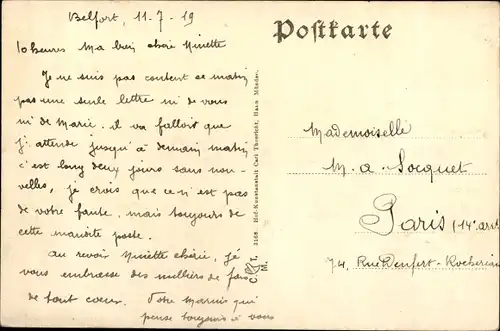 Belfort, 11-7-19
10 heures Ma bien chère Ninette
Je ne suis pas content ce matin
pas une seule lettre ni de vous
ni de Marie. il va falloir que
j'attende jusqu'à demain matin
c'est long deux jours sans nou-
velles, je crois que ce n'est pas
de votre faute. mais toujours de
cette maudite poste.
au revoir Ninette chérie, je
vous embrasse des milliers de fois
de tout cœur. Votre qui
pense toujours à vous
Postkarte
3168 Hof-Kunstanstalt Carl Thoericht, Hann. Münden.
C. T.
M.
Mademoiselle
M. A. Socquet
Paris (14e arrt
74, Rue Denfert-Rochereau